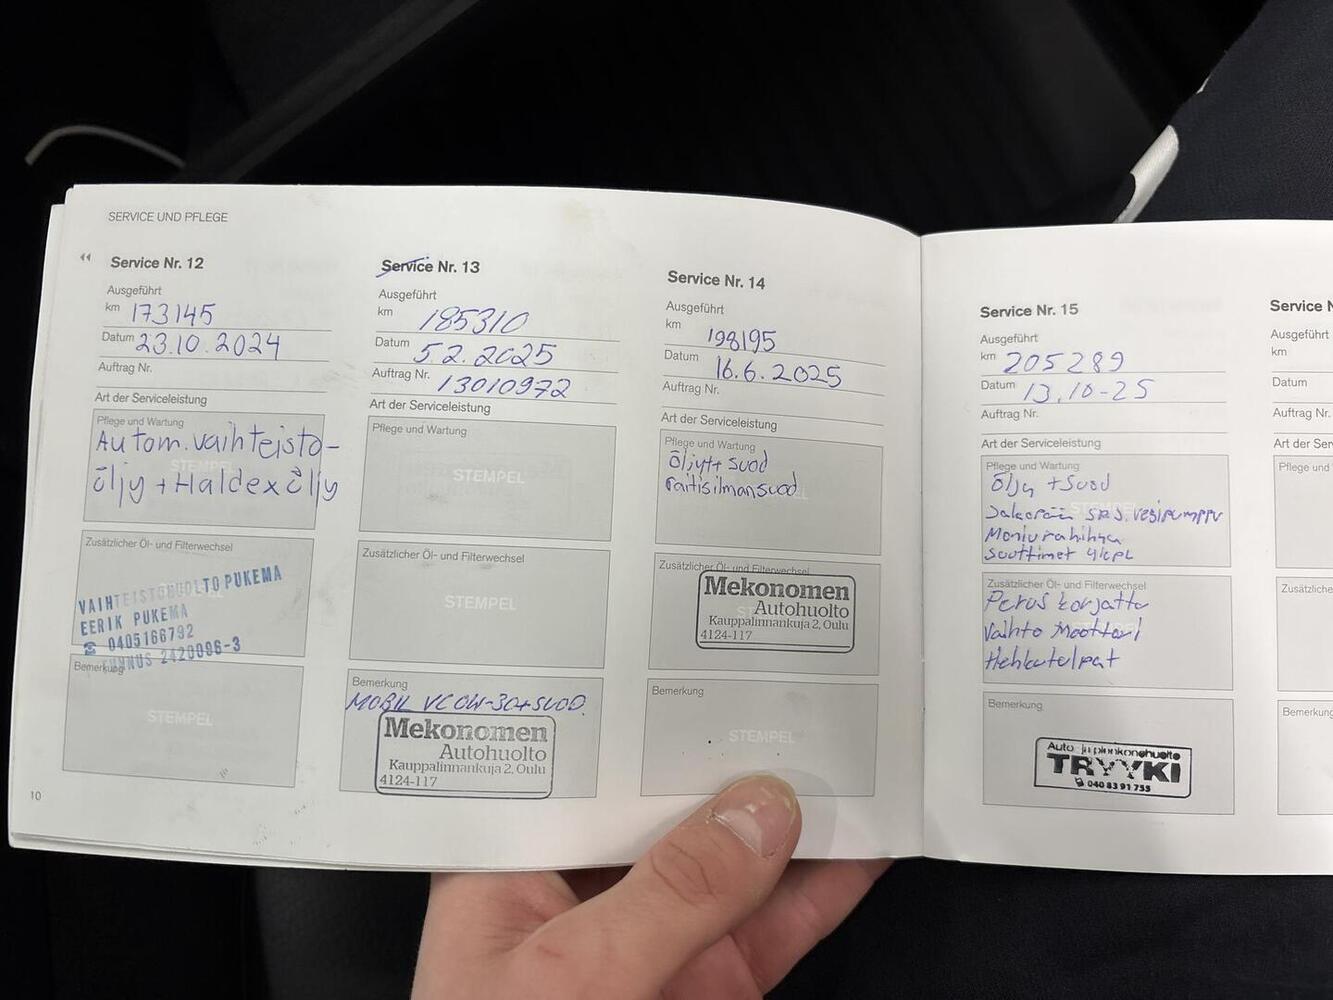 SERVICE UND PFLEGE
Service Nr. 12
Ausgeführt
km 173145
Datum 23.10.2024
Auftrag Nr.
Art der Serviceleistung
Pflege und Wartung
Autom.vaihteisto-
öljy + Haldex öljy
STEMPEL
Zusätzlicher Öl- und Filterwechsel
VAIHTEISTOHUOLTO PUKEMA
EERIK PUKEMA
☎ 0405166792
TUNNUS 2420096-3
Bemerkung
STEMPEL
10
Service Nr. 13
Ausgeführt
km 185310
Datum 5.2.2025
Auftrag Nr. 13010972
Art der Serviceleistung
Pflege und Wartung
STEMPEL
Zusätzlicher Öl- und Filterwechsel
STEMPEL
Bemerkung
MOBIL VC 0W-30+SUOD.
Mekonomen
Autohuolto
Kauppalinnankuja 2, Oulu
4124-117
Service Nr. 14
Ausgeführt
km 198195
Datum 16.6.2025
Auftrag Nr.
Art der Serviceleistung
Pflege und Wartung
Öljyt+ suod
raitisilmansuod
Zusätzlicher Öl- und Filterwechsel
Mekonomen
Autohuolto
Kauppalinnankuja 2, Oulu
4124-117
Bemerkung
STEMPEL
Service Nr. 15
Ausgeführt
km 205289
Datum 13.10-25
Auftrag Nr.
Art der Serviceleistung
Pflege und Wartung
Öljy + Suod
Jakopään srj. vesipumppu
Moniurahihna
Suuttimet 4kpl
Zusätzlicher Öl- und Filterwechsel
Perus korjattu
Vaihto moottori
Hehkutulpat
Bemerkung
Auto- ja pienkonehuolto
TRYYKI
040 83 91 755
Service N
Ausgeführt
km
Datum
Auftrag Nr.
Art der Ser
Pflege und
Zusätzliche
Bemerkung